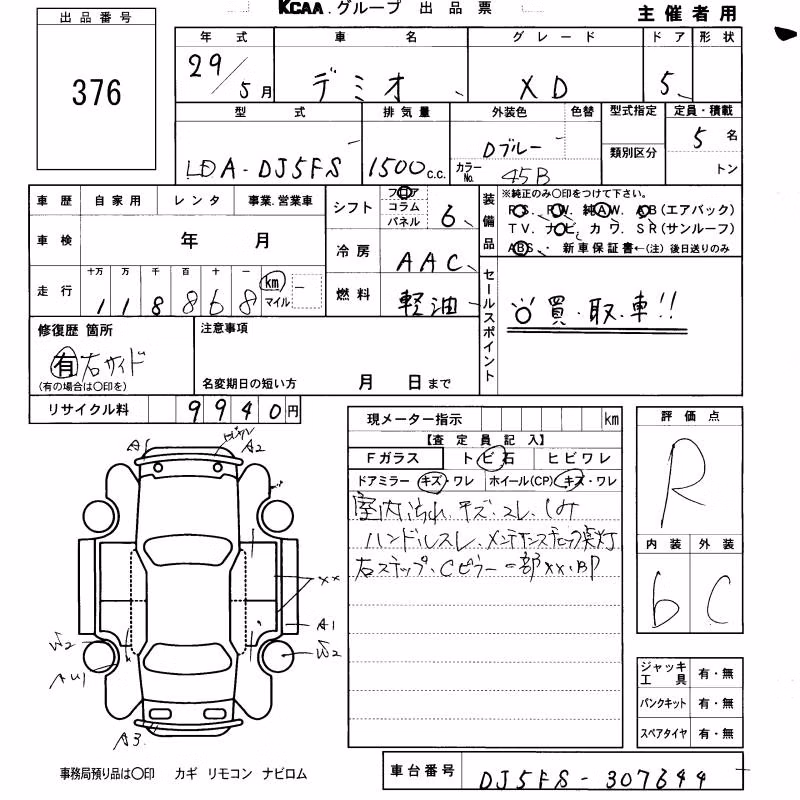 KCAA.グループ 出品票
主催者用
出品番号
376
年式 車名 グレード ドア 形状
29/5月 デミオ XD 5
型式 排気量 外装色 色替 型式指定 定員・積載
LDA-DJ5FS 1500c.c. Dブルー
カラーNo. 45B
類別区分
5名
トン
車歴 自家用 レンタ 事業.営業車
車検 年 月
走行 十万 万 千 百 十 一
118868 km マイル
シフト フロア コラム パネル 6
冷房 AAC
燃料 軽油
装備品
※純正のみ○印をつけて下さい。
P.S. P.W. 純A.W. A.B(エアバック)
T.V. ナビ. カワ. S.R(サンルーフ)
ABS. 新車保証書←(注)後日送りのみ
セールスポイント
◎買取車!!
修復歴 箇所
有 右サイド
(有の場合は○印を)
注意事項
名変期日の短い方 月 日まで
リサイクル料 9940円
現メーター指示 km
【査定員記入】
Fガラス トビ石 ヒビワレ
ドアミラー キズ・ワレ ホイール(CP) キズ・ワレ
室内汚れ.キズ.スレ.しみ
ハンドルスレ.メンテナンスチェック美灯
右ステップ.Cピラー一部xx.BP
評価点
R
内装 外装
6 C
ジャッキ工具 有・無
パンクキット 有・無
スペアタイヤ 有・無
A1
A2
xx
A1
W2
W2
AU1
A3
事務局預り品は○印 カギ リモコン ナビロム
車台番号 DJ5FS-307644